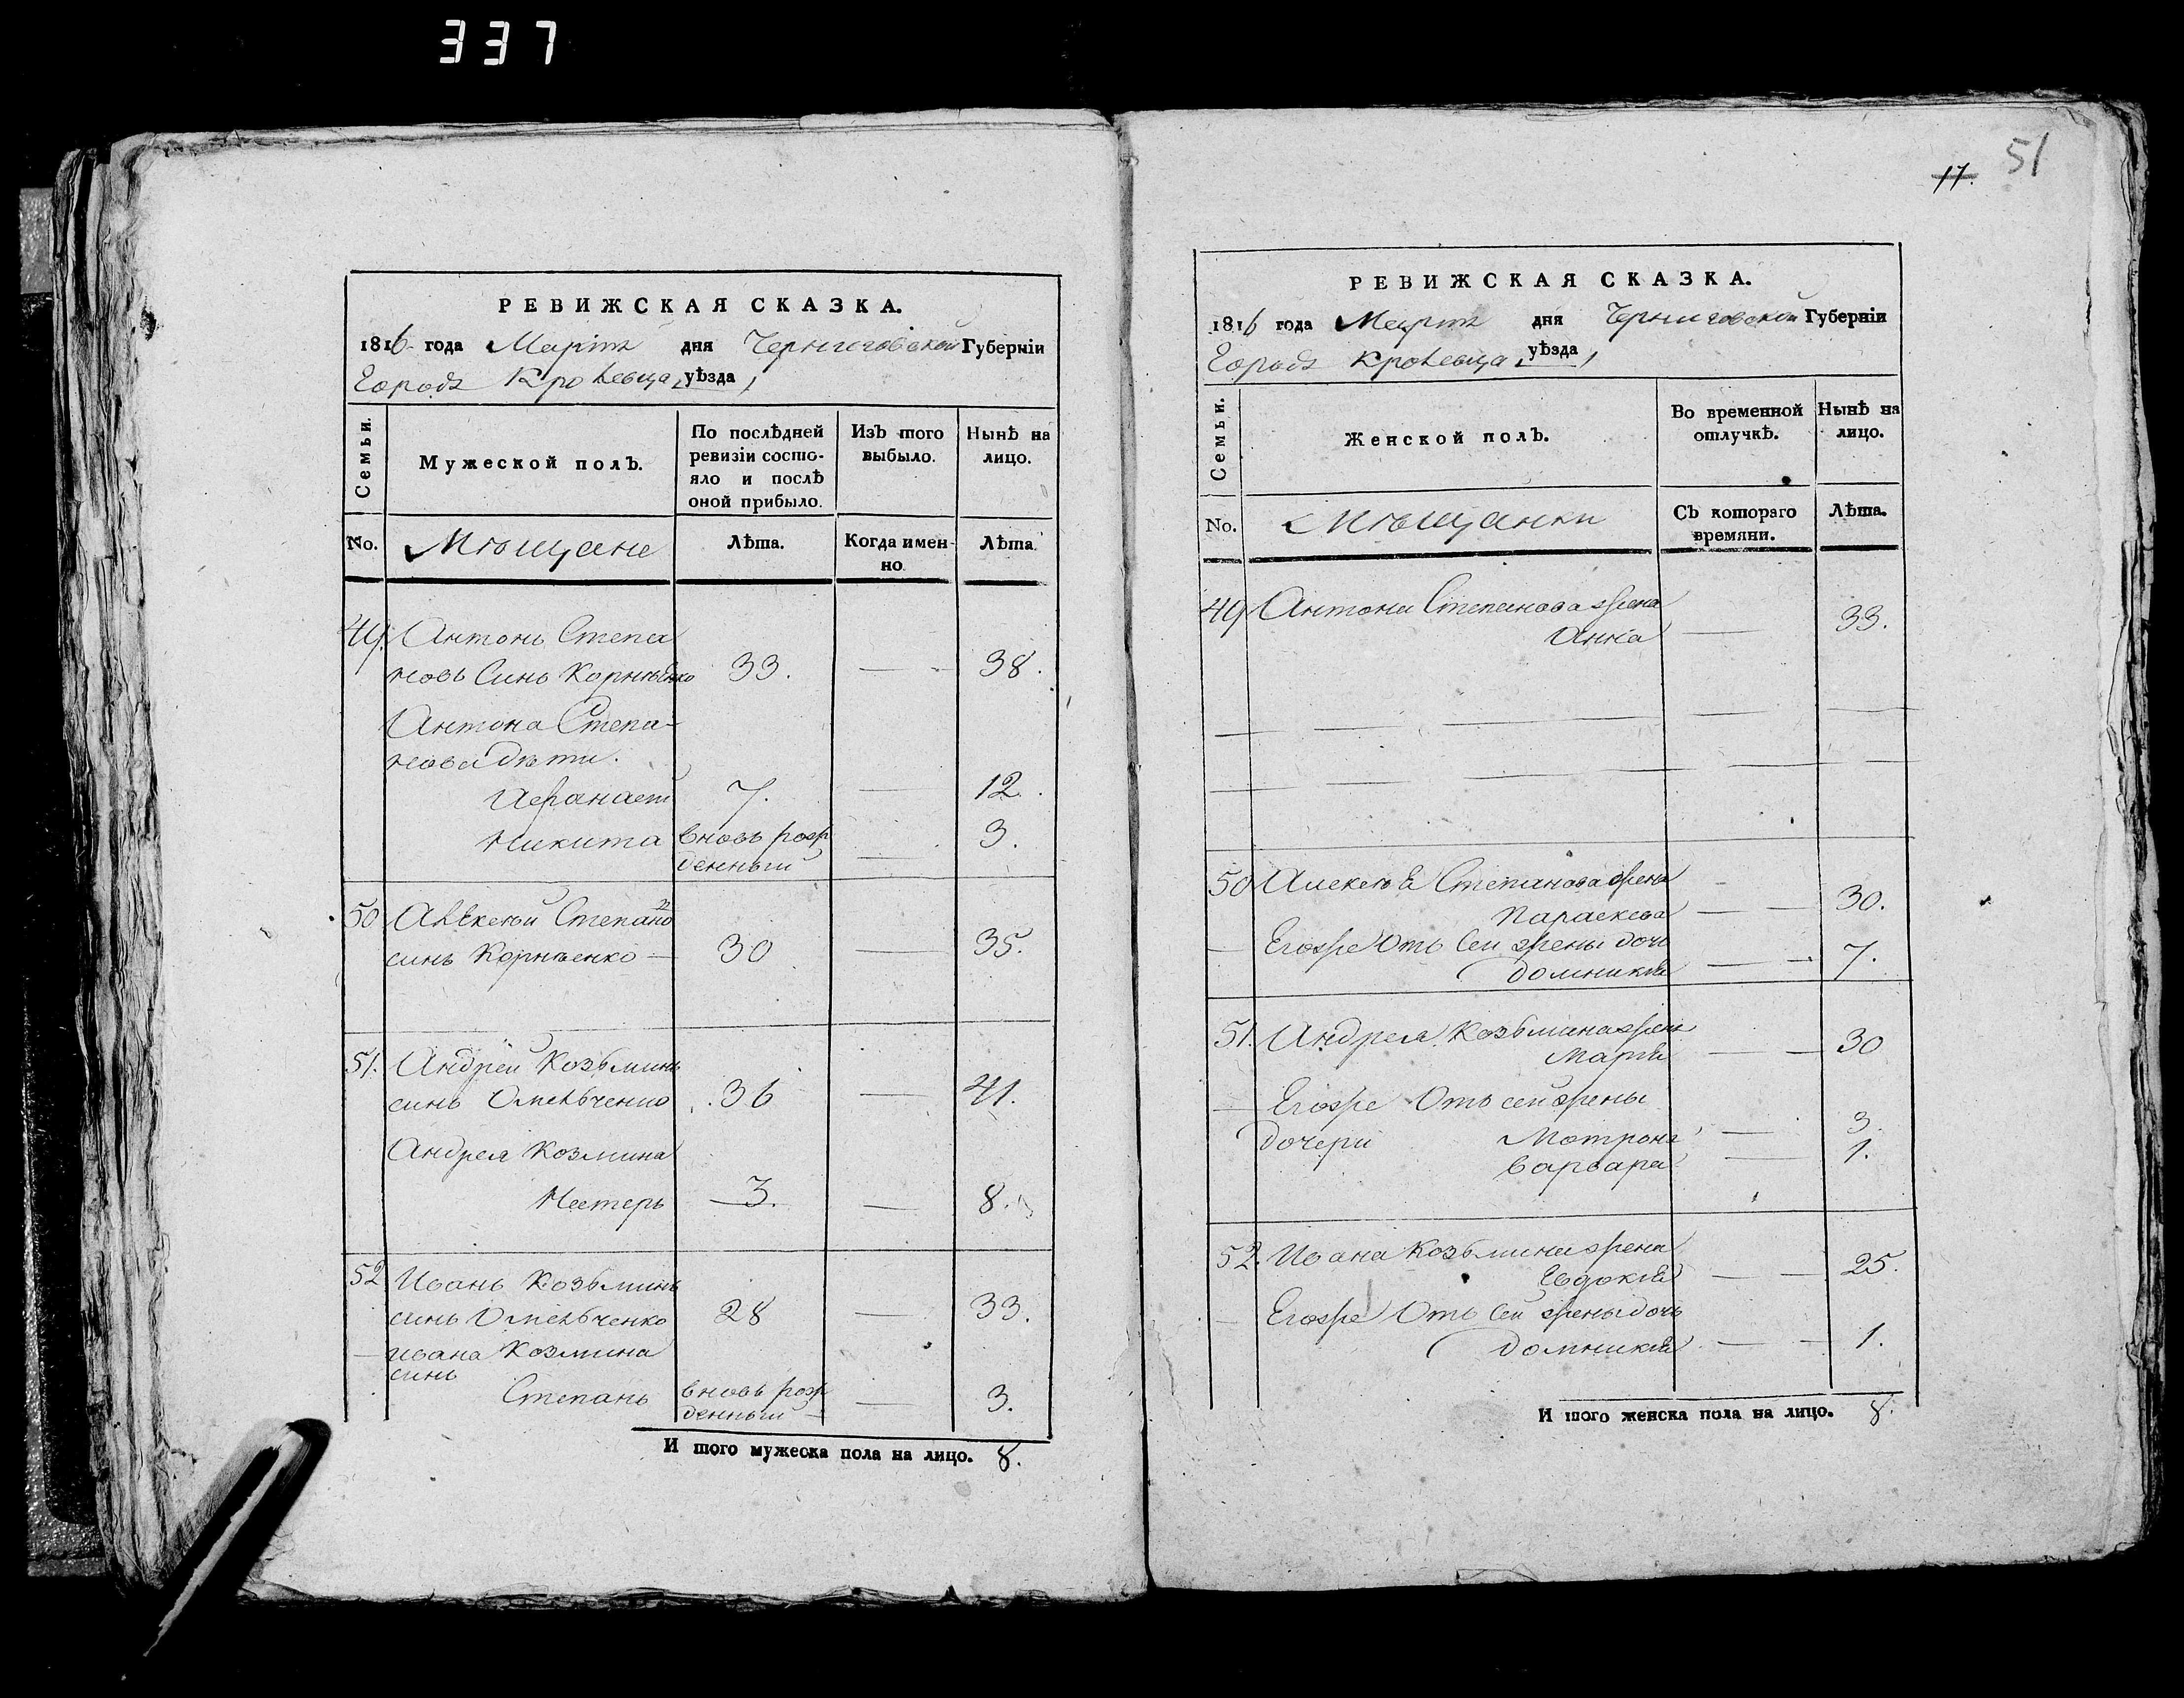 337
РЕВИЖСКАЯ СКАЗКА.
1816 года Мартъ дня Черниговской Губерніи
Городъ Кролевца, уѣзда
Семьи.
Мужеской полъ.
По послѣдней ревизіи состояло и послѣ оной прибыло.
Изъ того выбыло.
Нынѣ на лицо.
No.
Мѣщане
Лѣта.
Когда именно.
Лѣта.
49. Антонъ Степа
новъ Синъ Корнѣенко 33. — 38.
Антона Степа-
нова дѣти.
Афанасій 7. — 12.
Никита вновь рож
денный — 3.
50 Алексѣй Степано
синъ Корнѣенко — 30 — 35.
51. Андрей Козьминъ
синъ Омельченко 36 — 41.
Андрея Козмина
Нестеръ 3. — 8.
52 Иванъ Козьминъ
синъ Омельченко 28 — 33.
— Ивана Козмина
синъ
Степанъ вновь рож
денный — 3.
И того мужеска пола на лицо. 8.
17. 51
РЕВИЖСКАЯ СКАЗКА.
1816 года Мартъ дня Черниговской Губерніи
Городъ Кролевца, уѣзда
Семьи.
Женской полъ.
Во временной отлучкѣ.
Нынѣ на лицо.
No.
Мѣщанки
Съ котораго времяни.
Лѣта.
49 Антона Степанова жена
Анна — 33.
50 Алексѣя Степанова жена
Параскева — 30.
— Егоже Отъ Сей жены дочь
Домникія — 7.
51. Андрея Козьмина жена
Марія — 30
— Егоже Отъ сей жены
дочери Мотрона — 3.
Варвара — 1.
52. Ивана Козьмина жена
Евдокія — 25.
— Егоже Отъ Сей жены дочь
Домникія — 1.
И того женска пола на лицо. 8.